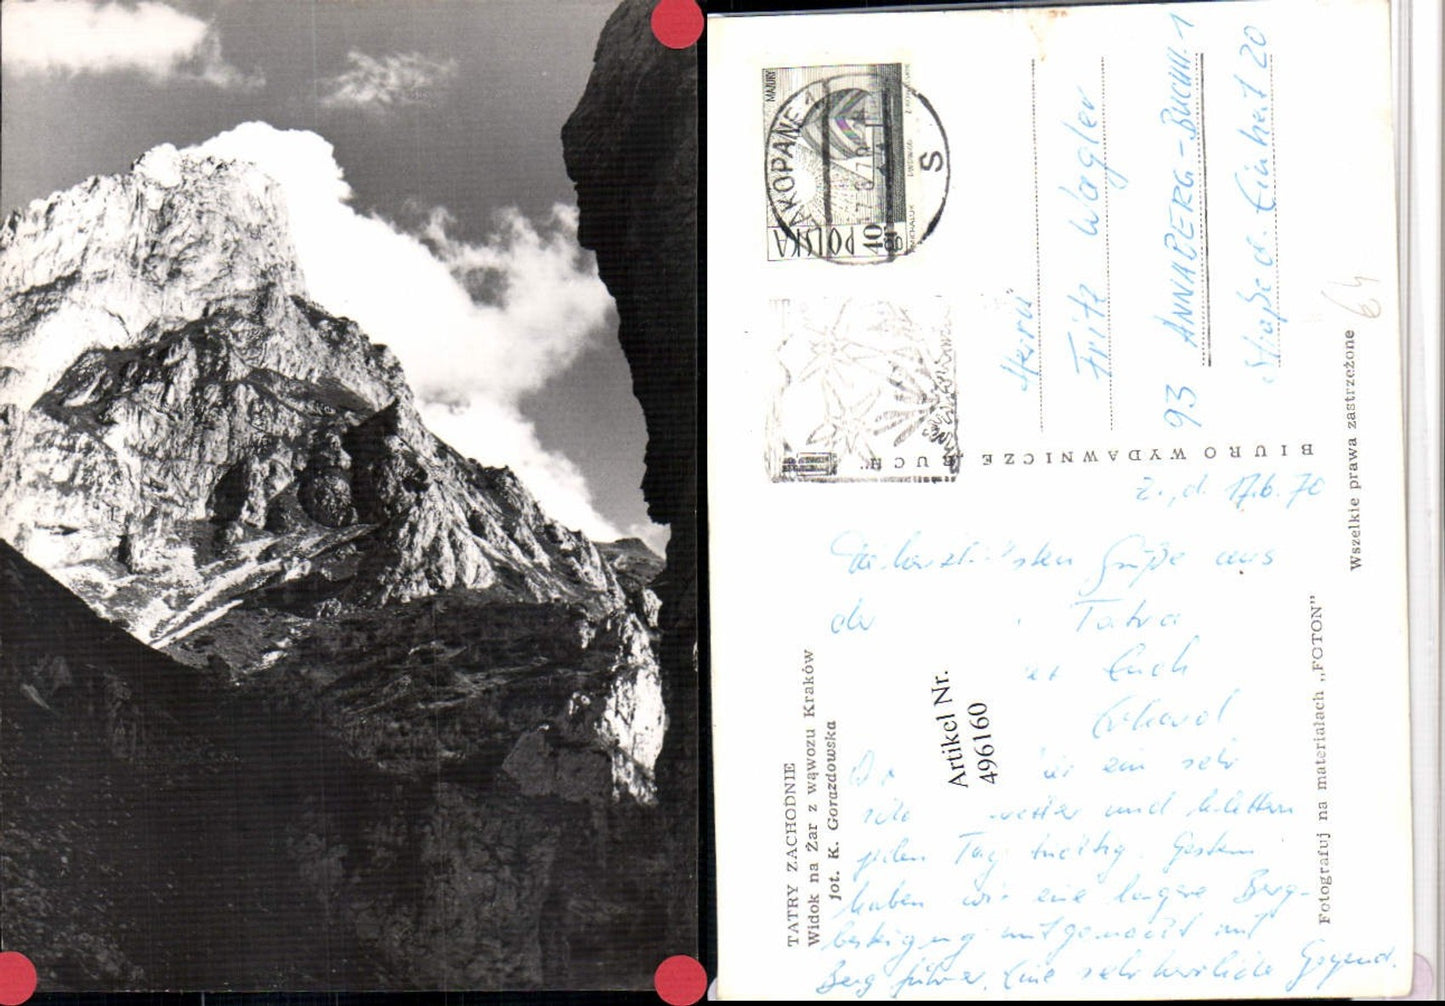 TATRY ZACHODNIE
Widok na Żar z wąwozu Kraków
fot. K. Gorazdowska
Z., d. 17.6.70
Grüße aus
der Tatra
Euch
Erhard
ein sehr
und klettern
jeden Tag tüchtig. Gestern
haben wir eine längere Berg-
besteigung mitgemacht mit
Bergführer. Eine sehr herrliche Gegend.
Artikel Nr.
496160
BIURO WYDAWNICZE „RUCH”
MAZURY
POLSKA
40 GR
ZAKOPANE 1
S
Herrn
Fritz Wagler
93 ANNABERG-BUCHH. 1
Straße d. Einheit 20
64
Wszelkie prawa zastrzeżone
Fotografuj na materiałach „FOTON”